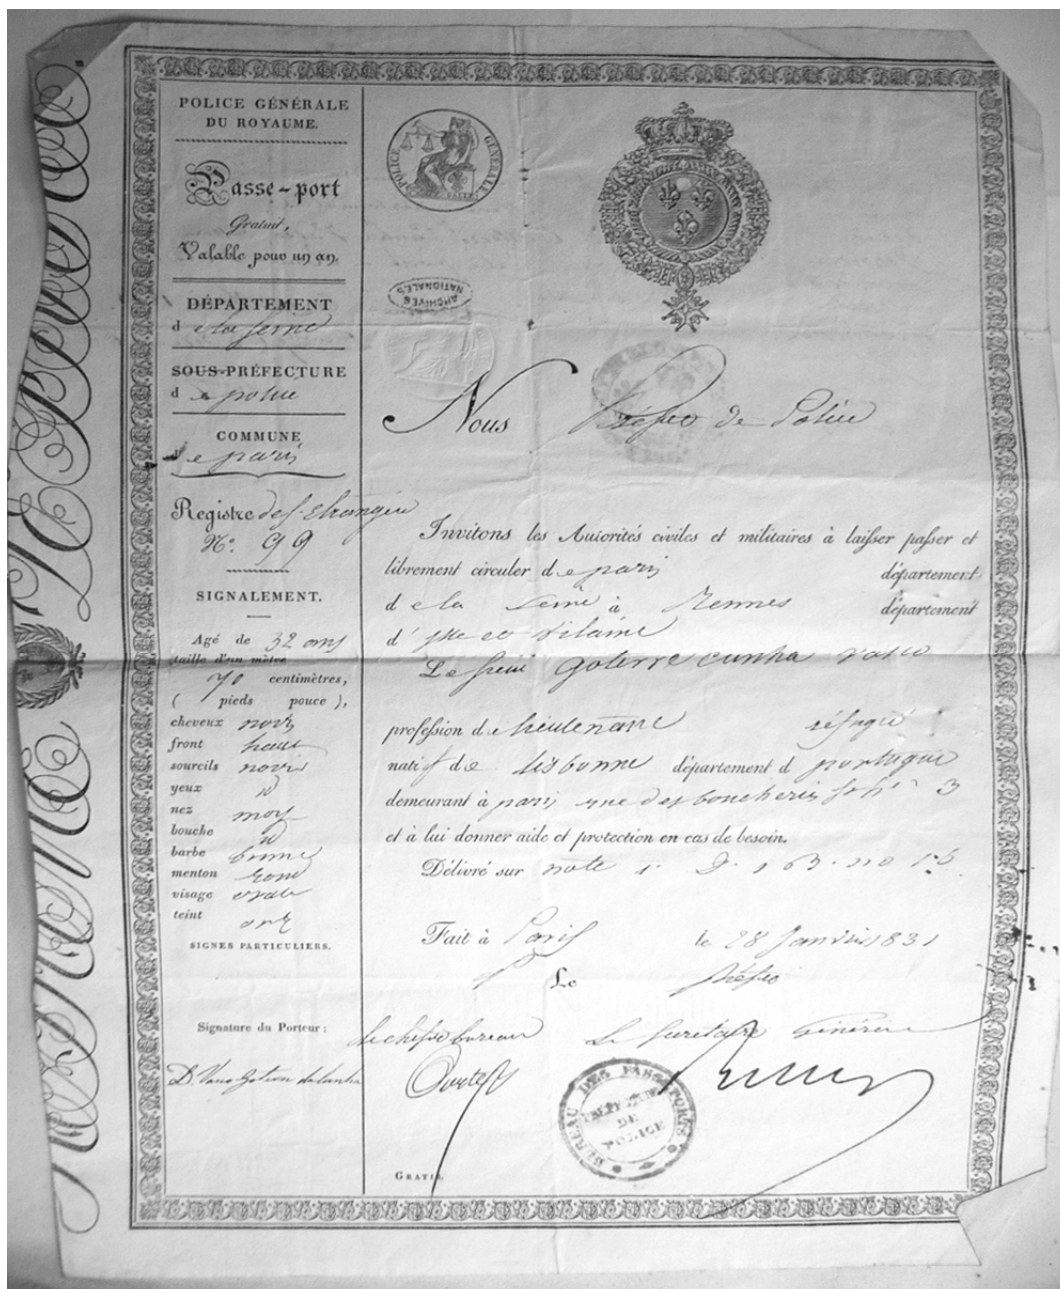 POLICE GÉNÉRALE
DU ROYAUME.
Passe-port
Gratuit,
Valable pour un an.
DÉPARTEMENT
de la Seine
SOUS-PRÉFECTURE
de police
COMMUNE
de paris
Registre des Etrangers
N.º 99
SIGNALEMENT.
Agé de 32 ans
taille d'un mètre
70 centimètres,
( pieds pouce ),
cheveux noirs
front haut
sourcils noirs
yeux id
nez moy
bouche id
barbe brune
menton rond
visage ovale
teint
SIGNES PARTICULIERS.
Signature du Porteur :
POLICE GÉNÉRALE
ARCHIVES
NATIONALES
Nous Préfet de Police
Invitons les Autorités civiles et militaires à laisser passer et
librement circuler de paris département
de la Seine à Rennes département
d'ille et Vilaine
Le Sieur goterre cunha vasco
profession de lieutenant réfugié
natif de lisbonne département d portugal
demeurant à paris rue des boucheries n.º 3
et à lui donner aide et protection en cas de besoin.
Délivré sur note
Fait à Paris le 28 Janvier 1831
Le Préfet
le chef de bureau Le Secrétaire Général
BUREAU DES PASSEPORTS
PRÉFECTURE
DE
POLICE
GRATIS.